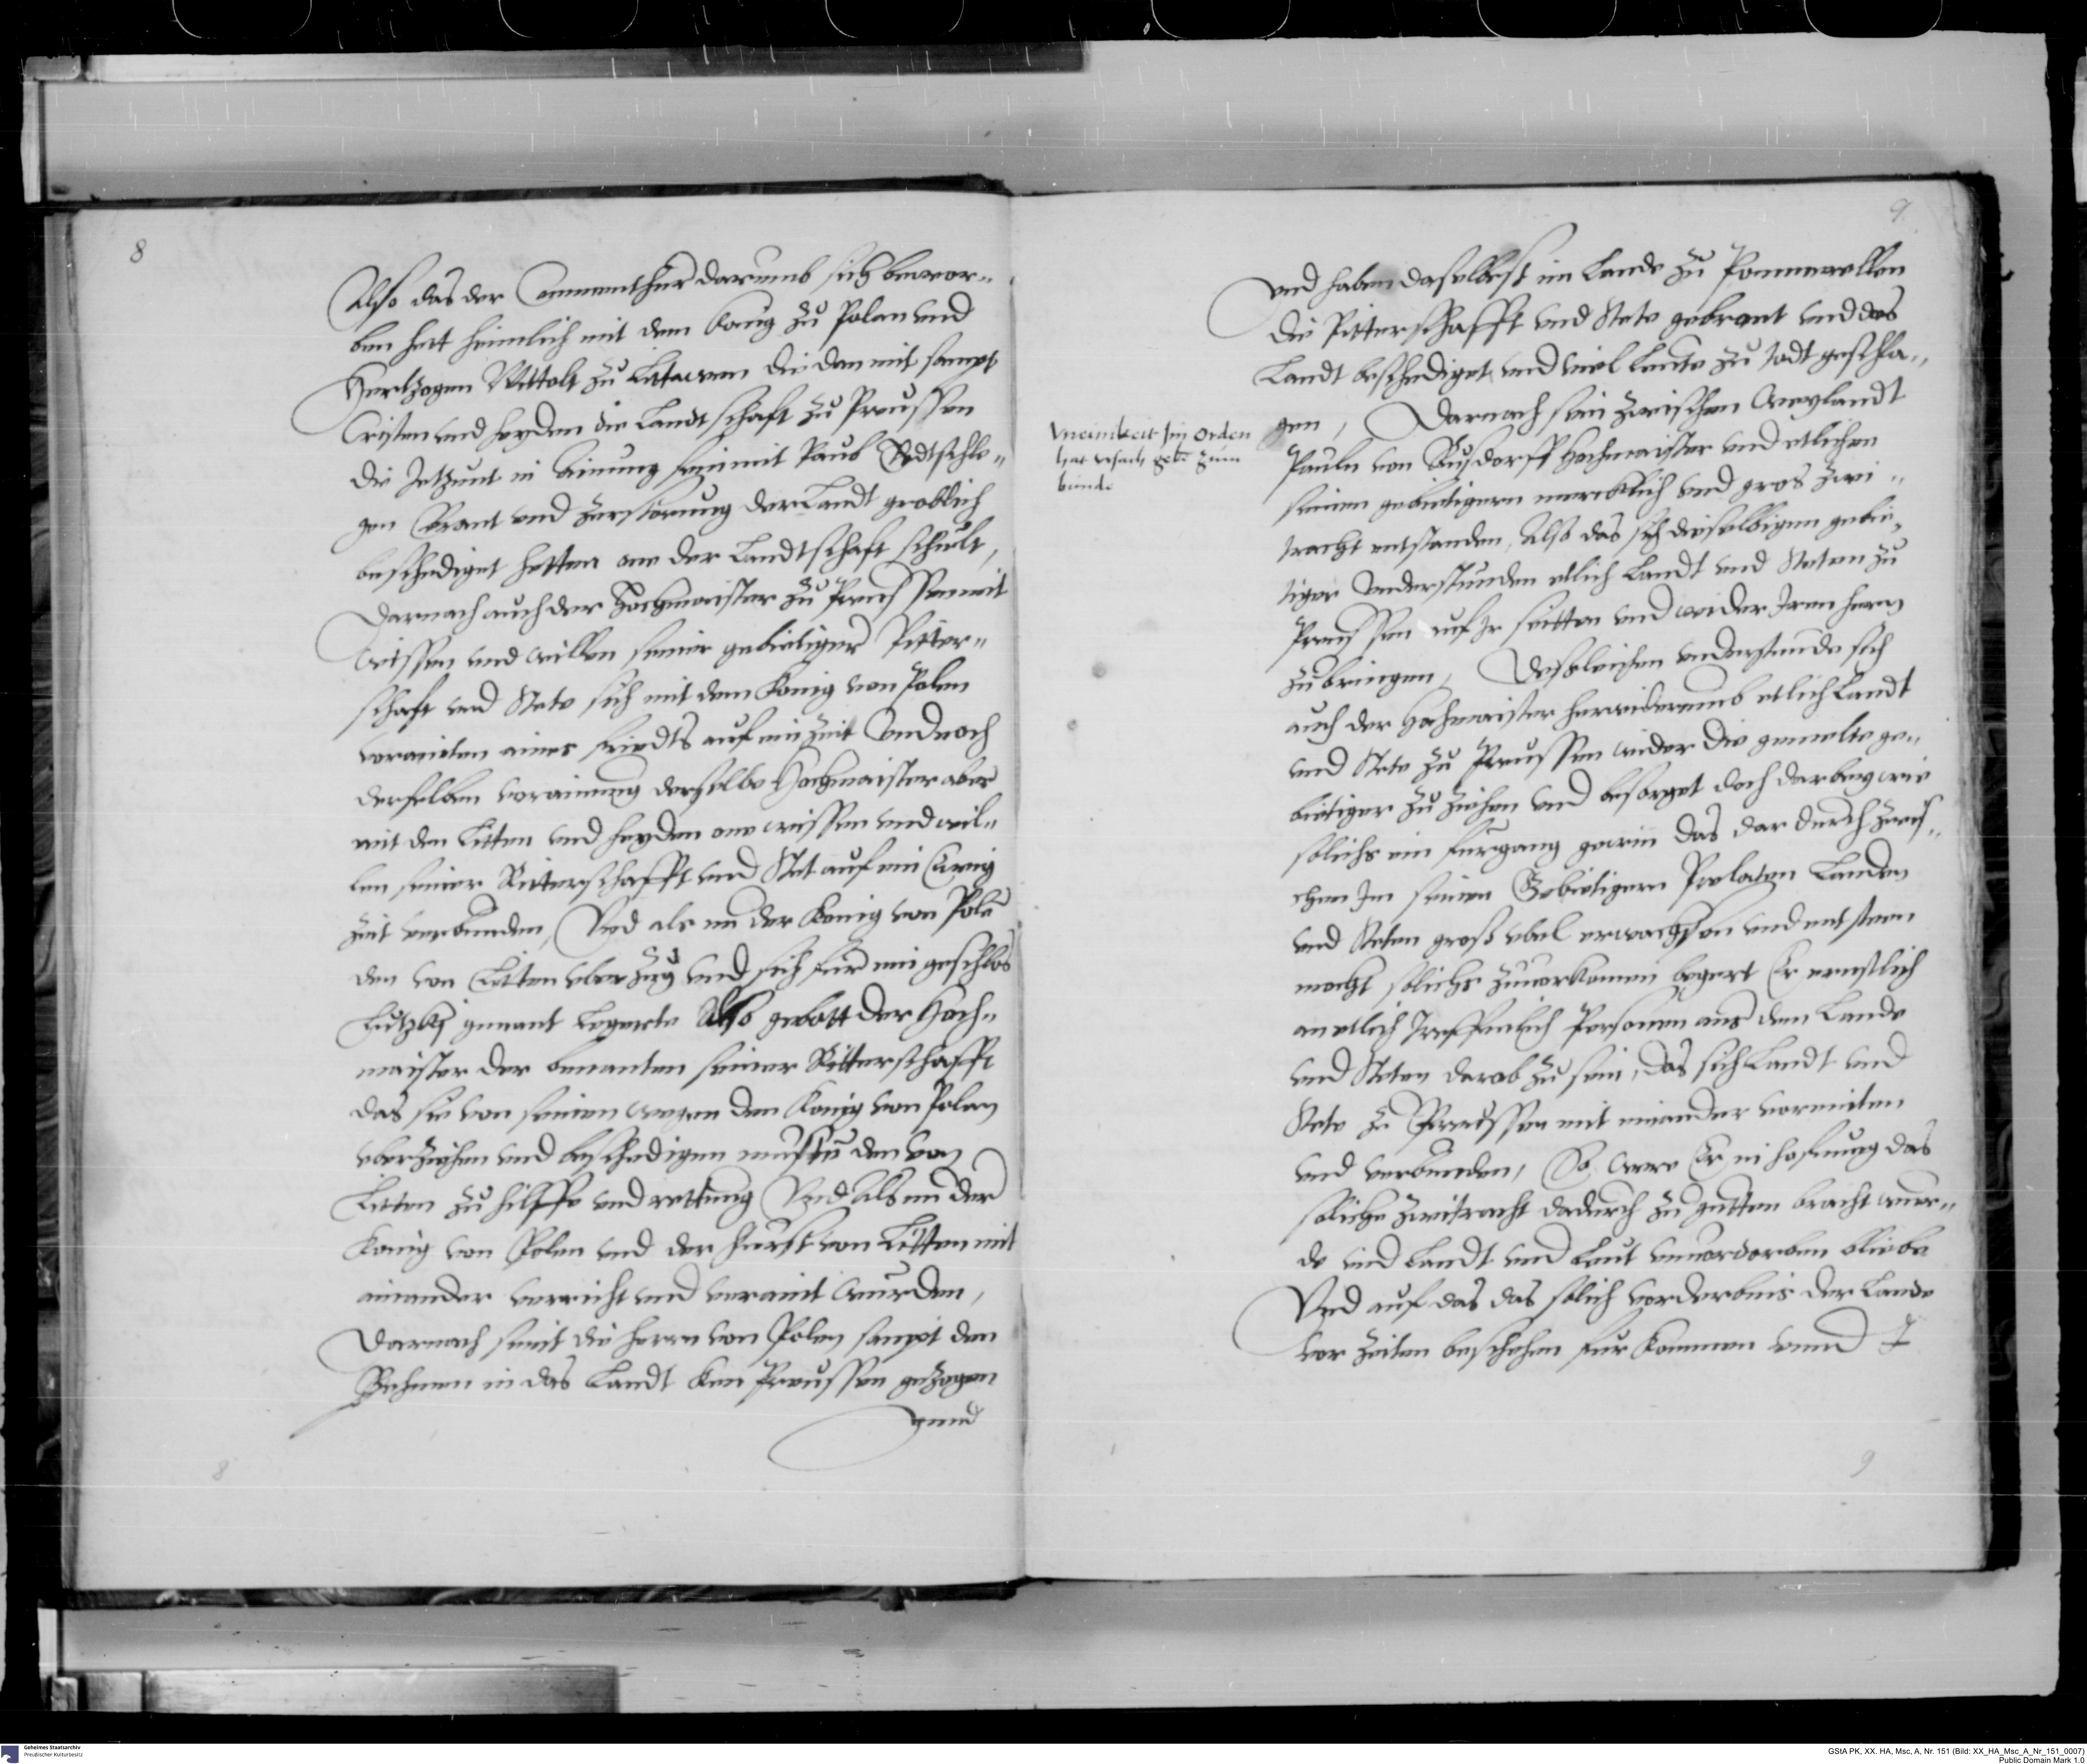 8
Also das der Commenthur darumb sich bewor-
ben hett heimlich mit dem konig zu Polan vnd
Hertzogen Wittolt zu Littawen die dan mit sampt
Cristen vnd heyden die Landtschaft zu Preussen
die Jetzunt in Ainung sein mit Raub Todtschle-
gen Brant vnd Zurstorung der Landt groblich
beschediget hetten one der Landtschaft schult,
Darnach auch der Hochmaister zu Preussen mit
wissen vnd willen seiner gebietiger Ritter-
schaft vnd Stete sich mit dem Konig von Polen
vorainten aines friedts auf ein Zeit Vnd noch
derselben vorainung derselbe Hochmaister aber
mit den Litten vnd heyden one wissen vnd wil-
len seiner Ritterschafft vnd Stet auf ein Ewig
Zeit verbunden, Vnd als nu der Konig von Polen
den von Litten vberzug vnd sich fur ein geschlos
Lutzky genant Legerte Also gebott der Hoch-
maister der benanten seiner Ritterschafft
das sie von seinen wegen den Konig von Polan
vberziehen vnd beschedigen musten den von
Litten zu hilffe vnd rettung Vnd als nu der
Konig von Polen vnd der furst von Litten mit
ainander vorricht vnd veraint wurden,
Darnach seint die herrn von Polen sampt den
Behemen in das Landt ken Preussen gezogen
vnnd
8
9
vnd haben daselbest im Lande zu Pommerellen
die Ritterschafft vnd Stete gebrant vnd das
Landt beschediget vnd viel Leute zu todt geschla-
gen, Darnach sein zwischen Weylandt
Vneinikeit Jm Orden
hat vrsach gebn zum
bunde
Pauln von Rusdorff Hochmaister vnd etlichen
seinen gebietigern mercklich vnd gros Zwi-
tracht entstanden, Also das sich dieselbigen gebie-
tiger Vnderstunden etlich Landt vnd Steten zu
Preussen auf Jr seitten vnd wider Jren hern
zu bringen, Desgleichen vnderstunde sich
auch der Hochmaister herwiderumb etlich Landt
vnd Stete zu Preussen wider die gemelte ge-
bietiger zu ziehen vnd besorget doch darbey wie
solichs ein furgang gewin Das dar durch zwis-
chen Jm seinen Gebietigern Prelaten Landen
vnd Steten groß vbel erwachssen vnd entsteen
mocht solichs zuuorkomen begert Er ernstlich
an etlich Treffenlich Personen aus dem Lande
vnd Steten darob zu sein, das sich Landt vnd
Stete zu Preussen mit einander vorainten
vnd verbunden, So were Er in hofnung das
soliche zwitracht dadurch zu gutten bracht wur-
de vnd Landt vnd Leut vnuordorben bliebe
Vnd auf das das solich vorderbnis der Lande
vor Zeiten beschehen fur kommen vnnd
9
Geheimes Staatsarchiv
Preußischer Kulturbesitz
GStA PK, XX. HA, Msc, A, Nr. 151 (Bild: XX_HA_Msc_A_Nr_151_0007)
Public Domain Mark 1.0